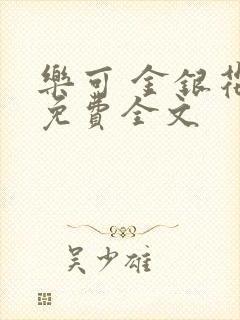 樂可 金銀花
免費全文
吳少雄